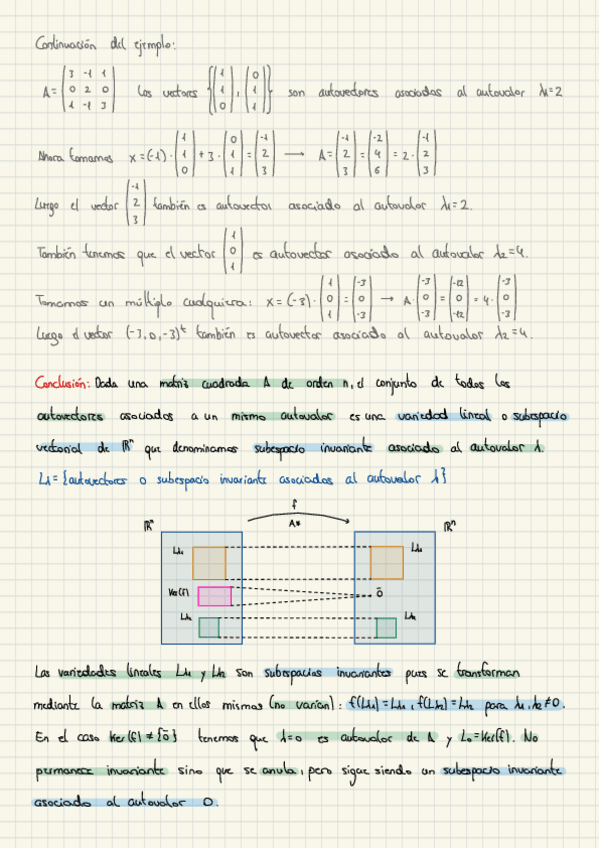 Continuación del ejemplo:
A = (3 -1 1; 0 2 0; 1 -1 3) Los vectores {(1 1 0), (0 1 1)} son autovectores asociados al autovalor λ1 = 2
Ahora tomamos x = (-1) · (1 1 0) + 3 · (0 1 1) = (-1 2 3) → A = (-1 2 3) = (-2 4 6) = 2 · (-1 2 3)
Luego el vector (-1 2 3) también es autovector asociado al autovalor λ1 = 2.
También tenemos que el vector (1 0 1) es autovector asociado al autovalor λ2 = 4.
Tomamos un múltiplo cualquiera: x = (-3) · (1 0 1) = (-3 0 -3) → A · (-3 0 -3) = (-12 0 -12) = 4 · (-3 0 -3)
Luego el vector (-3, 0, -3)^t también es autovector asociado al autovalor λ2 = 4.
Conclusión: Dada una matriz cuadrada A de orden n, el conjunto de todos los
autovectores asociados a un mismo autovalor es una variedad lineal o subespacio
vectorial de ℝⁿ que denominamos subespacio invariante asociado al autovalor λ.
Lλ = {autovectores o subespacio invariante asociados al autovalor λ}
f
ℝⁿ A* ℝⁿ
Lλ1 Lλ1
Ker(f) 0̄
Lλ2 Lλ2
Las variedades lineales Lλ1 y Lλ2 son subespacios invariantes pues se transforman
mediante la matriz A en ellas mismas (no varían): f(Lλ1) = Lλ1, f(Lλ2) = Lλ2 para λ1, λ2 ≠ 0.
En el caso Ker(f) ≠ {0̄} tenemos que λ = 0 es autovalor de A y L0 = Ker(f). No
permanece invariante sino que se anula, pero sigue siendo un subespacio invariante
asociado al autovalor 0.